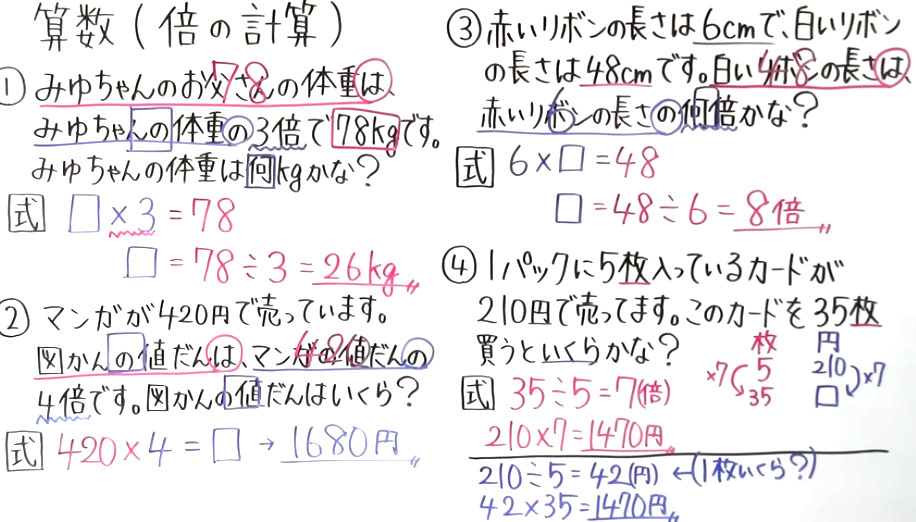 算数(倍の計算)
① みゆちゃんのお父さんの体重は、
みゆちゃんの体重の3倍で78kgです。
みゆちゃんの体重は何kgかな?
式 □×3=78
□=78÷3=26kg
② マンガが420円で売っています。
図かんの値だんは、マンガの値だんの
4倍です。図かんの値だんはいくら?
式 420×4=□→1680円
③ 赤いリボンの長さは6cmで、白いリボン
の長さは48cmです。白いリボンの長さは、
赤いリボンの長さの何倍かな?
式 6×□=48
□=48÷6=8倍
④ 1パックに5枚入っているカードが
210円で売ってます。このカードを35枚
買うといくらかな?
枚 円
×7 5 210 ×7
35 □
式 35÷5=7(倍)
210×7=1470円
210÷5=42(円)←(1枚いくら?)
42×35=1470円